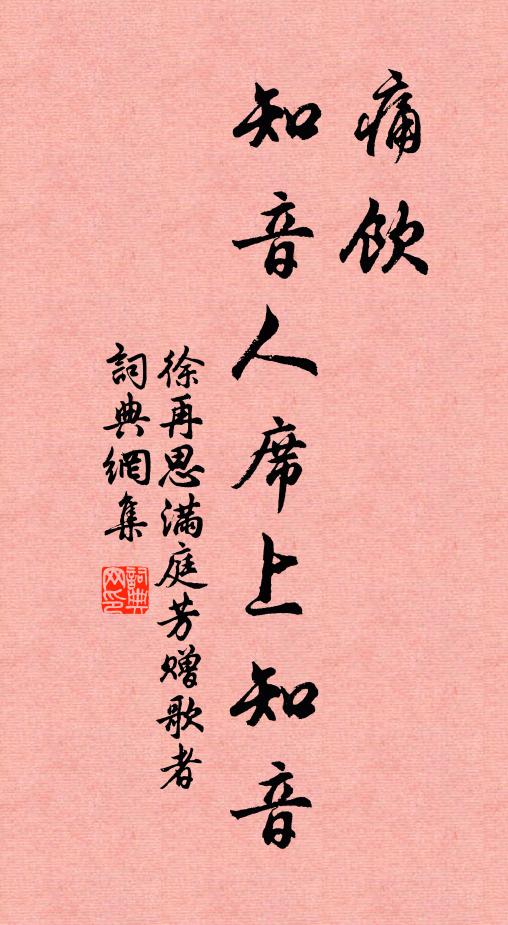 痛飲
知音人席上知音
徐再思满庭芳赠歌者
詞典網集
詞典网印